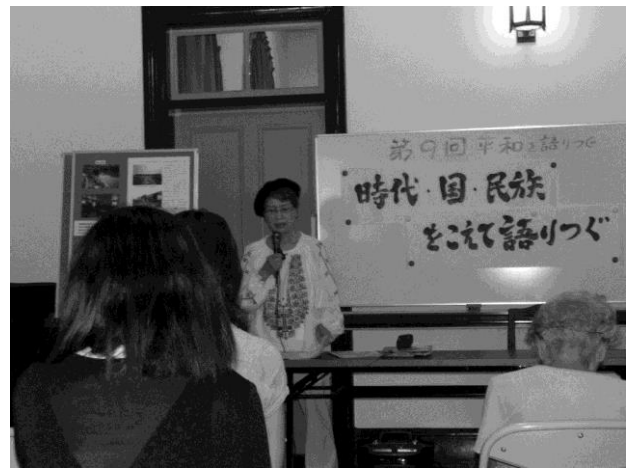 第9回 平和を語りつぐ
時代・国・民族
をこえて語りつぐ